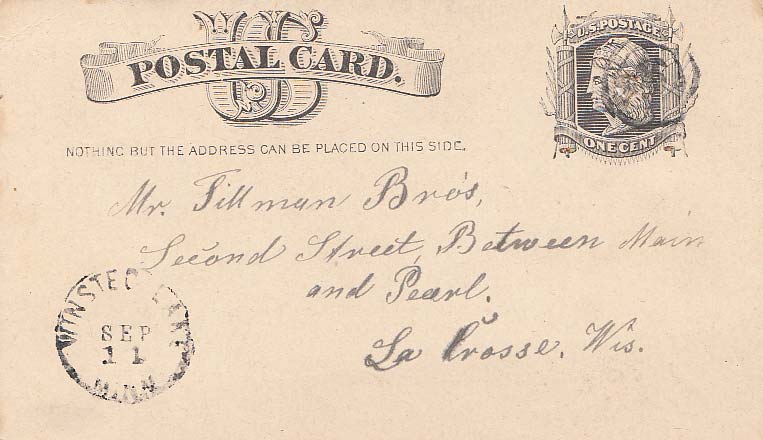 POSTAL CARD.
U.S. POSTAGE
ONE CENT
NOTHING BUT THE ADDRESS CAN BE PLACED ON THIS SIDE.
Mr. Tillman Bro's,
Second Street, Between Main
and Pearl.
La Crosse, Wis.
WINSTED
SEP
11
MINN